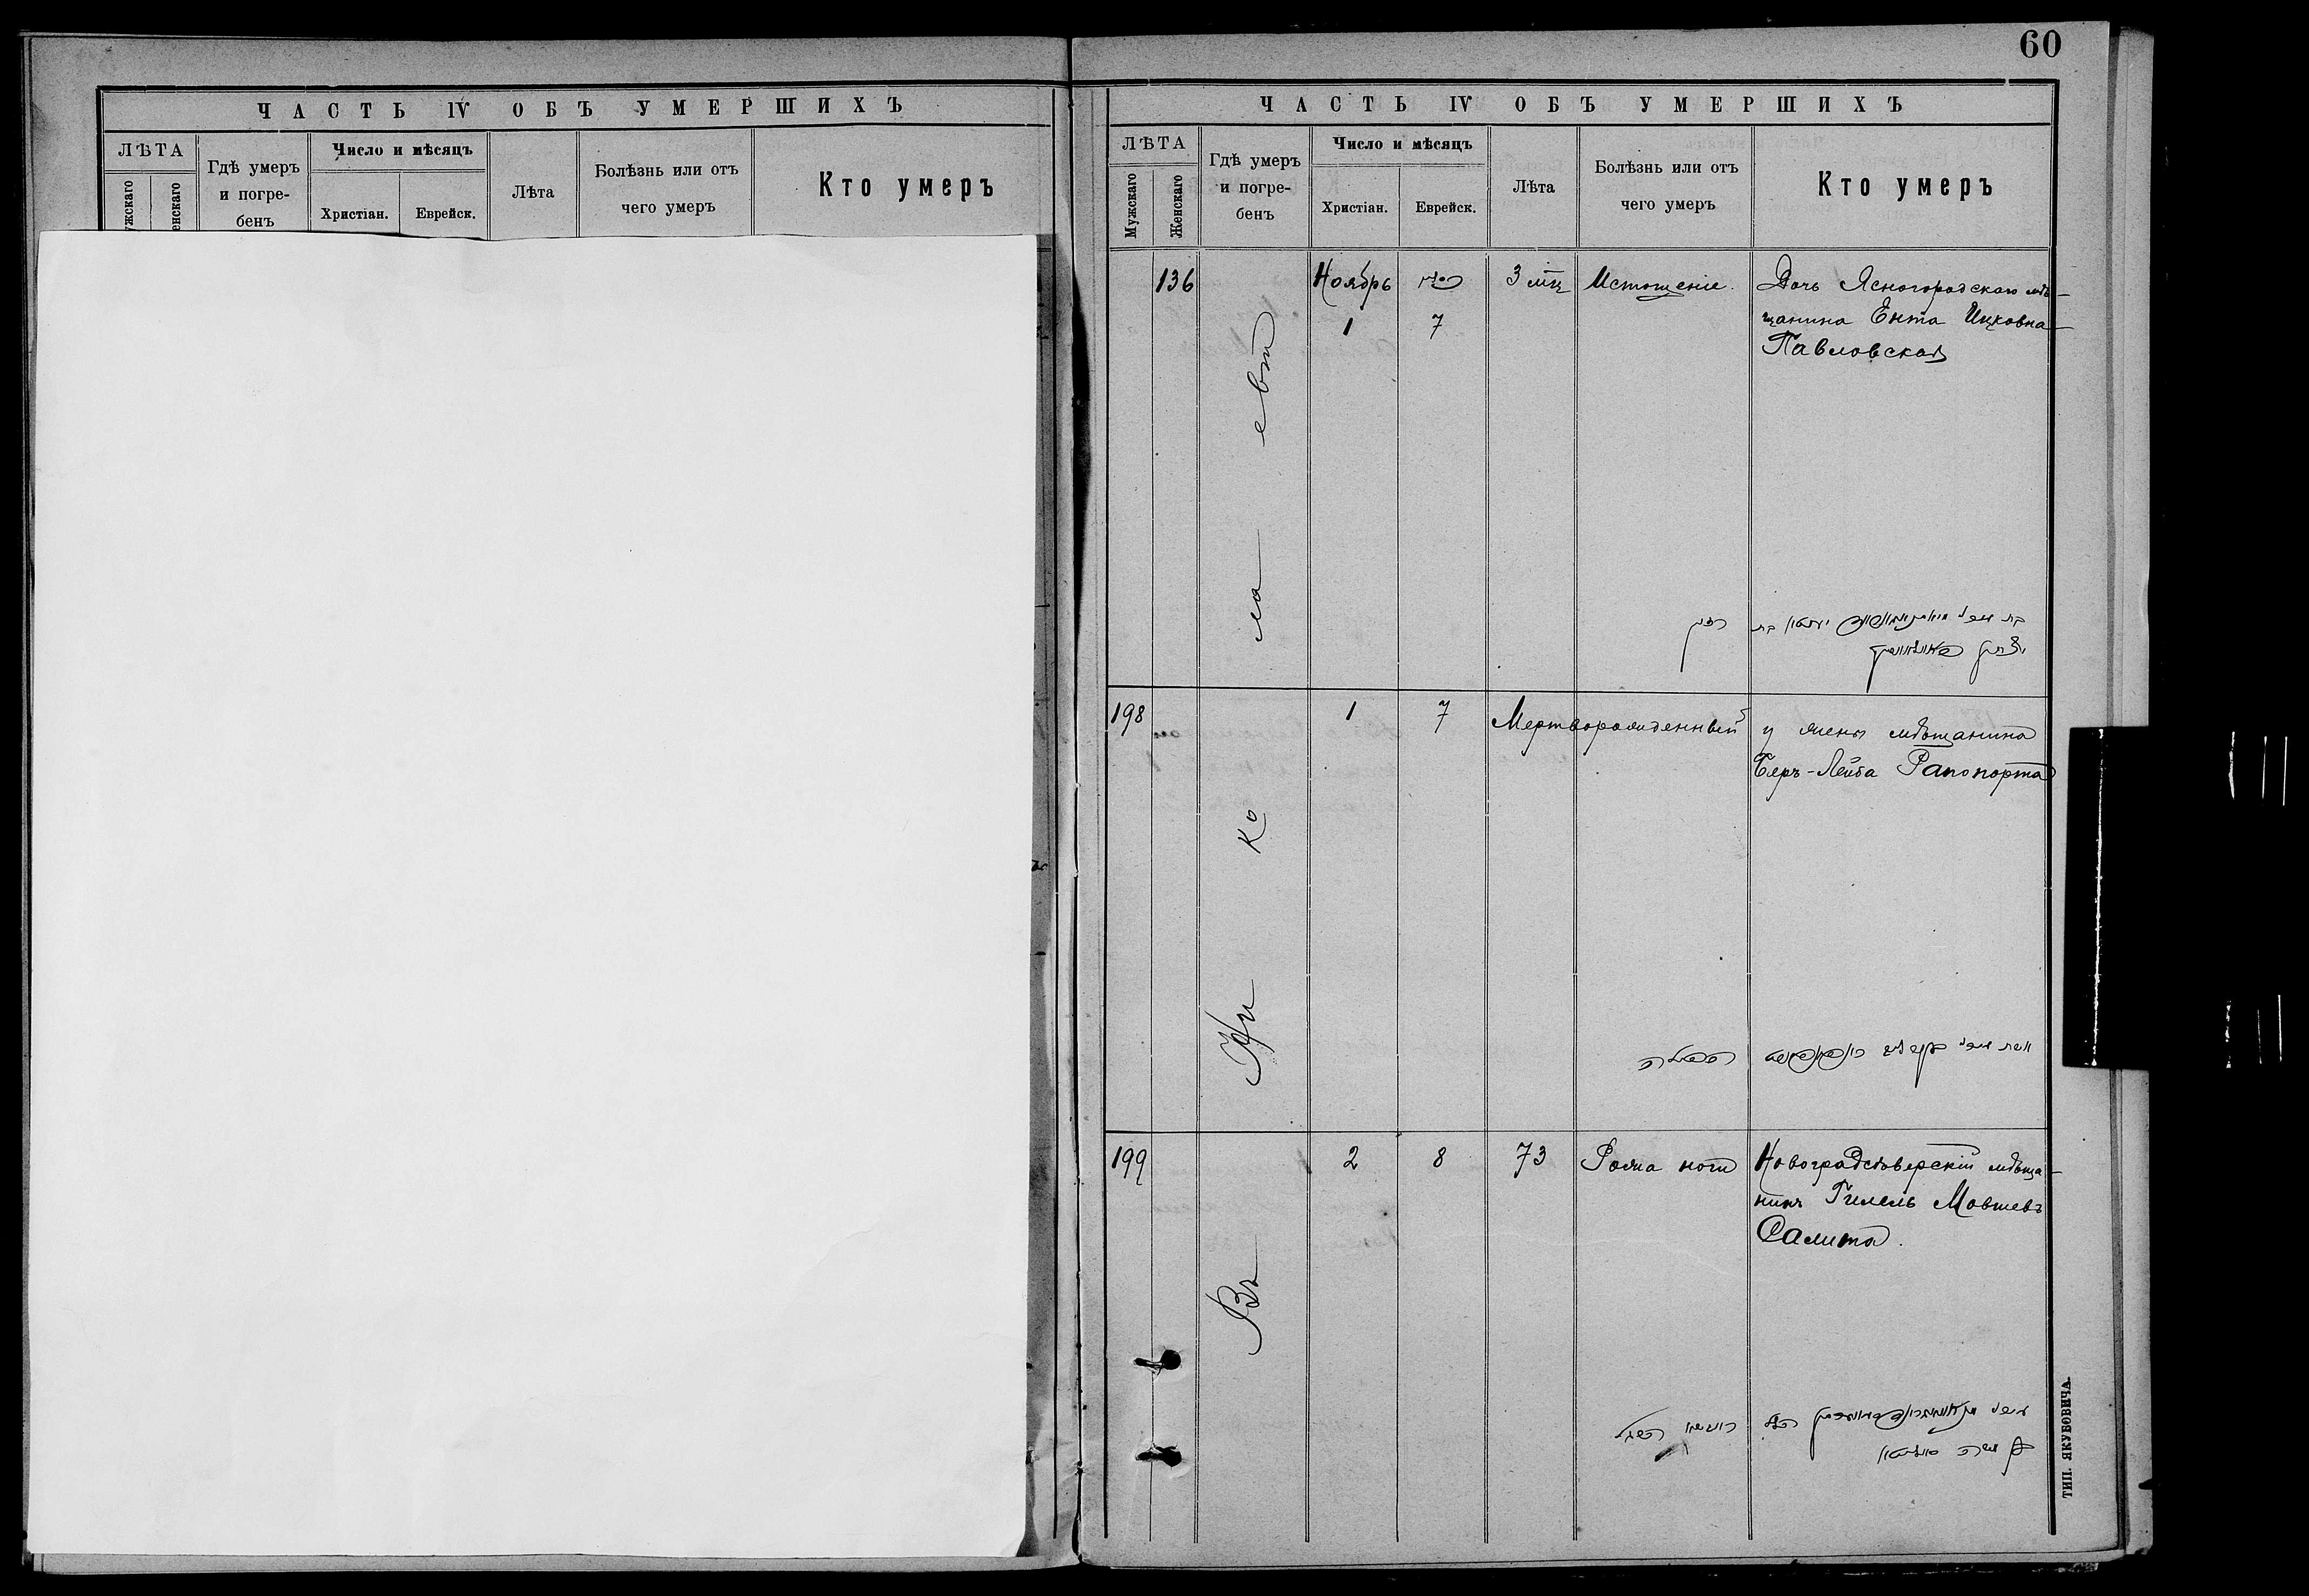 ЧАСТЬ IV ОБЪ УМЕРШИХЪ
ЛѢТА
Гдѣ умеръ
и погре-
бенъ
Число и мѣсяцъ
Христіан.
Еврейск.
Лѣта
Болѣзнь или отъ
чего умеръ
Кто умеръ
60
ЧАСТЬ IV ОБЪ УМЕРШИХЪ
ЛѢТА
Мужскаго
Женскаго
Гдѣ умеръ
и погре-
бенъ
Число и мѣсяцъ
Христіан.
Еврейск.
Лѣта
Болѣзнь или отъ
чего умеръ
Кто умеръ
Въ Ни ко ла евѣ
136
Ноябрь
1
7
3 мѣц
Истощеніе.
Дочь Ясногородскаго мѣ-
щанина Ента Ицковна
Павловская
198
1
7
Мертворожденный
у жены мѣщанина
Беръ-Лейба Рапопорта
199
2
8
73
Рожа ноги
мѣща-
нинъ Гилель Мовшевъ
Салита.
ТИП. ЯКУБОВИЧА.